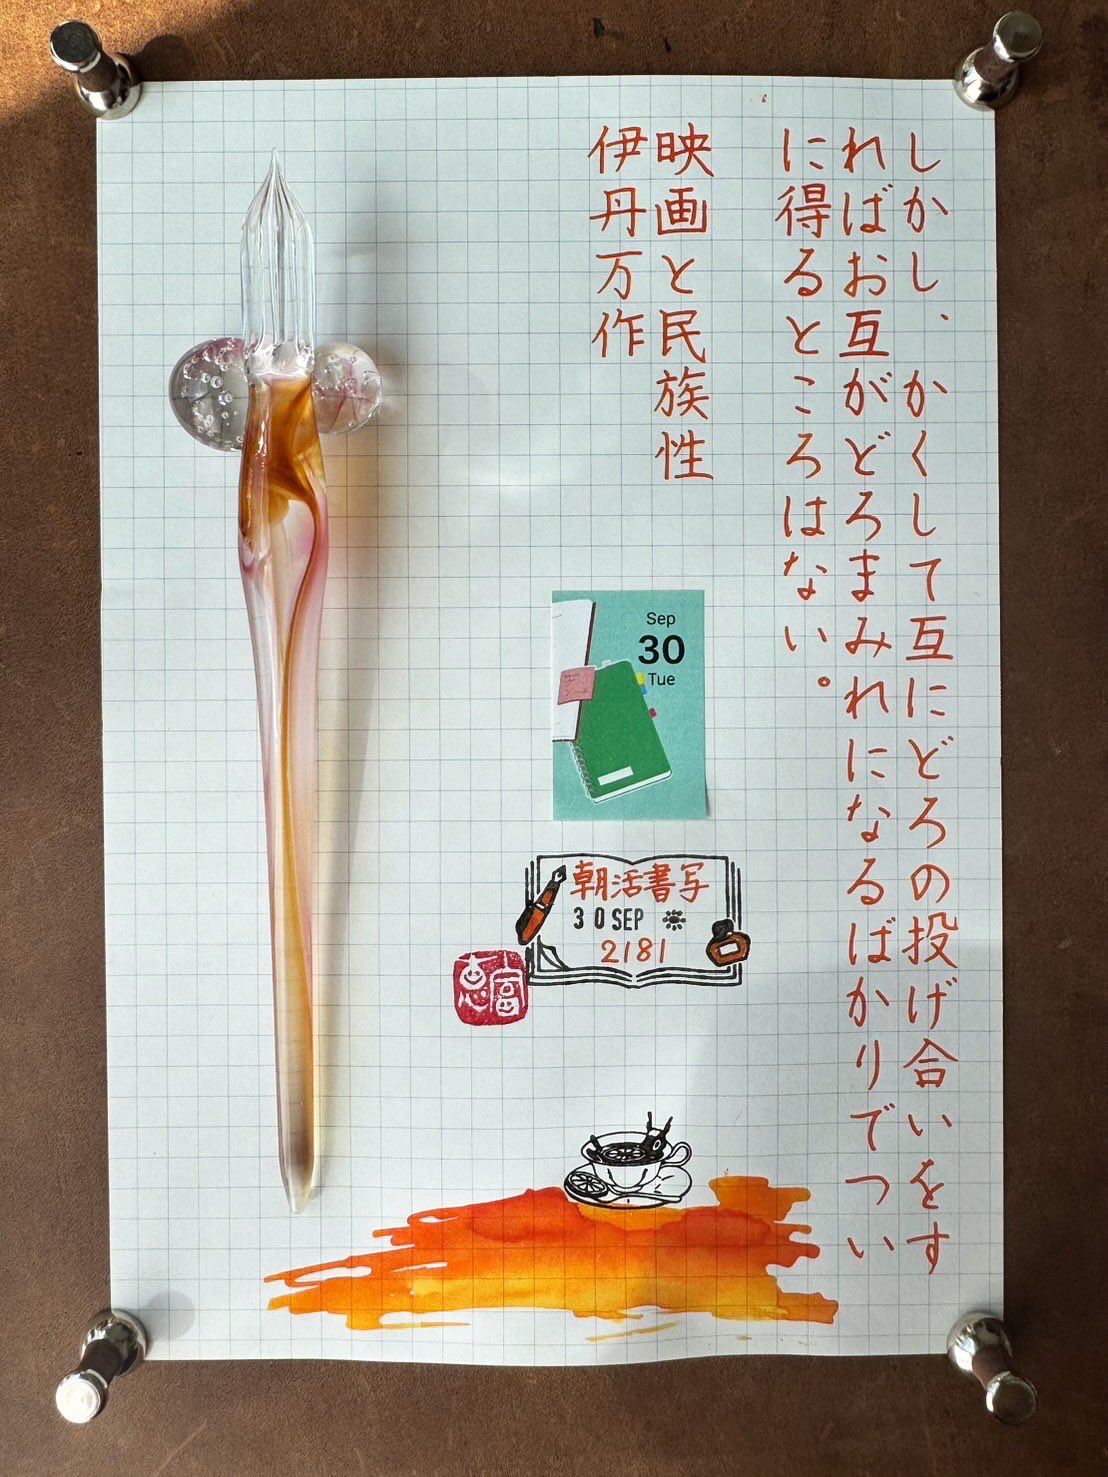 しかし、かくして互にどろの投げ合いをす
ればお互がどろまみれになるばかりでつい
に得るところはない。
映画と民族性
伊丹万作
Sep
30
Tue
朝活書写
30 SEP
2181